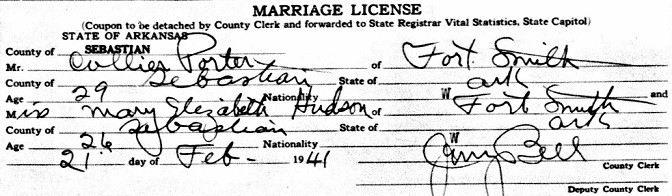 MARRIAGE LICENSE
(Coupon to be detached by County Clerk and forwarded to State Registrar Vital Statistics, State Capitol)
STATE OF ARKANSAS
County of SEBASTIAN
Mr. Collier Porter of Fort Smith
County of Sebastian State of Ark
Age 29 Nationality W and
Miss Mary Elizabeth Hudson of Fort Smith
County of Sebastian State of Ark
Age 26 Nationality W
21 day of Feb- 1941 Bell
County Clerk
Deputy County Clerk